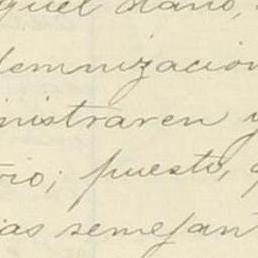 quel daño,
demnización
nistraren y
rio; puesto, q
ias semejant